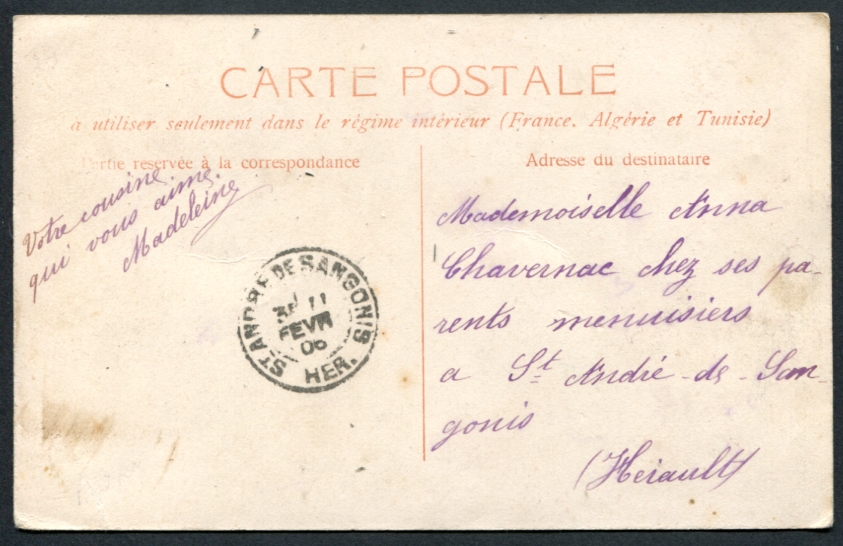 CARTE POSTALE
a utiliser seulement dans le régime intérieur (France, Algérie et Tunisie)
Partie reservée à la correspondance
Votre cousine
qui vous aime
Madeleine
ST ANDRÉ DE SANGONIS
11
FEVR
06
HER.
Adresse du destinataire
Mademoiselle Anna
Chavernac chez ses pa-
rents menuisiers
a St André-de-San-
gonis
(Hérault)